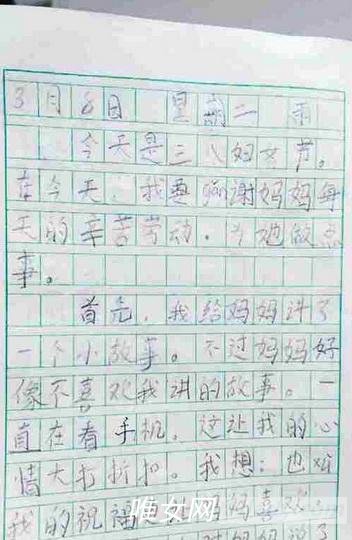 3月8日 星期二 雨
今天是三八妇女节。
在今天,我要感谢妈妈每
天的辛苦劳动。为她做点
事。
首先,我给妈妈讲了
一个小故事。不过妈妈好
像不喜欢我讲的故事。一
直在看手机。这让我的心
情大打折扣。我想:也对
我的祝福 妈喜欢
唯女网